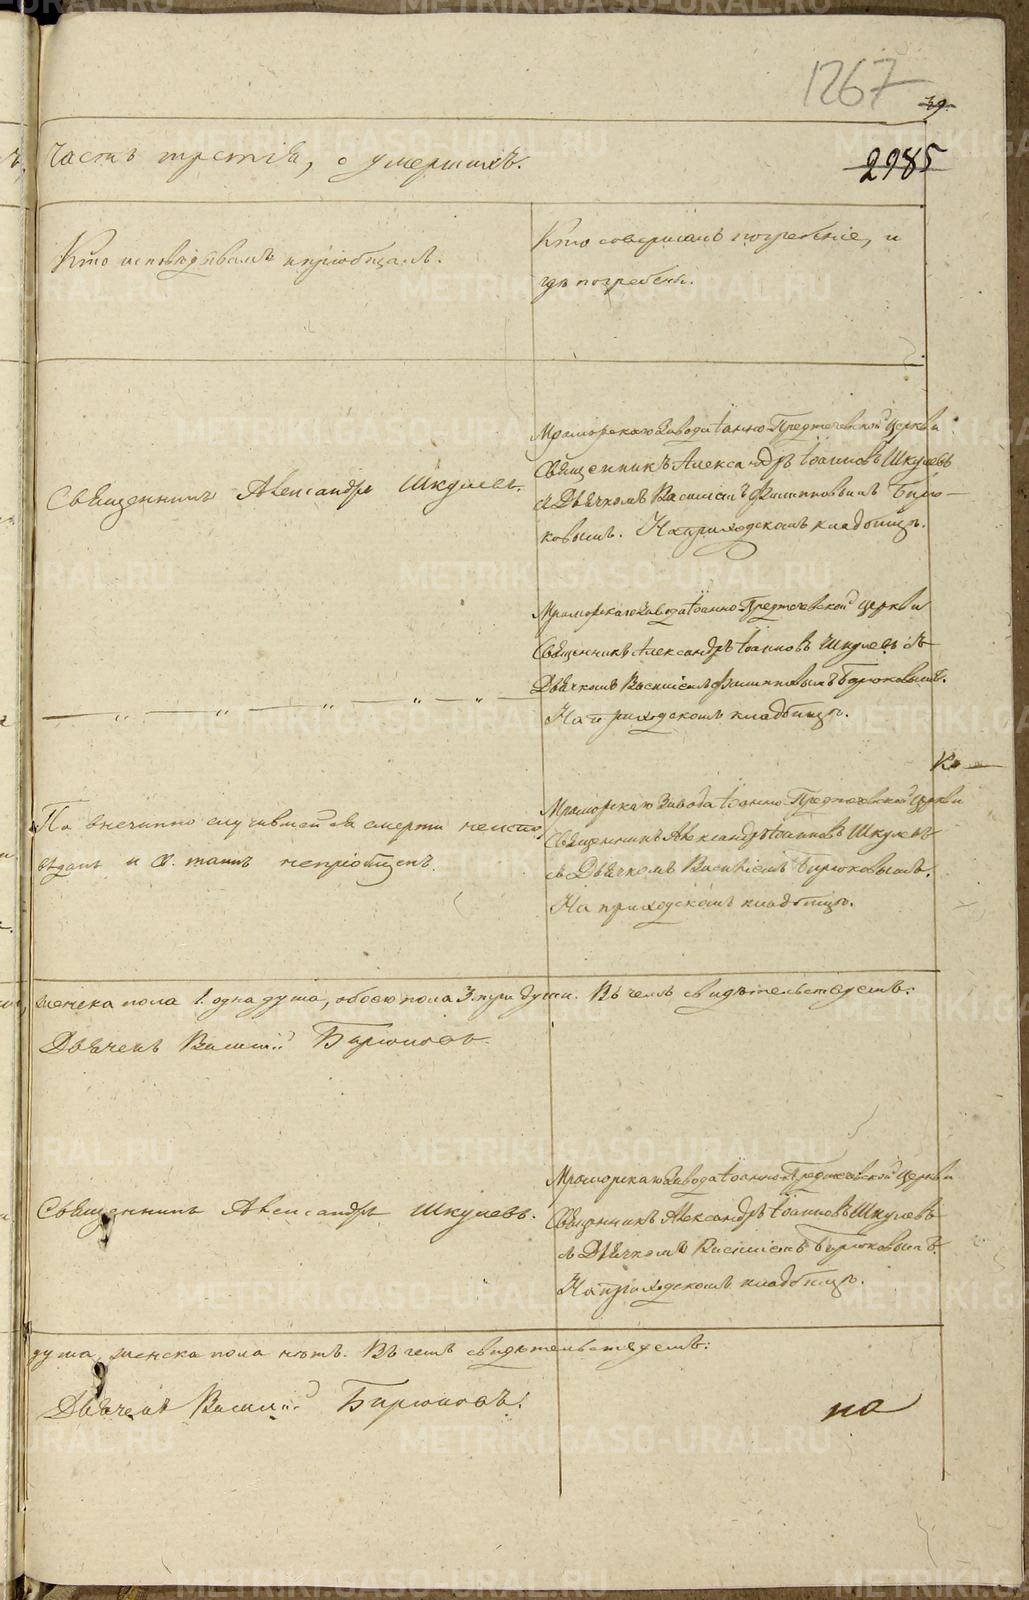 1267
39.
2985
Часть третія, о умершихъ.
Кто исповѣдывалъ и пріобщалъ.
Кто совершалъ погребеніе, и
гдѣ погребены.
Священникъ Александръ Шкулевъ.
Мраморскаго Завода Іоанно-Предтечевской церкви
Священникъ Александръ Іоанновъ Шкулевъ
съ Дьячкомъ Василіемъ Филипповымъ Бирю-
ковымъ. На приходскомъ кладбищѣ.
— „ — „ — „ — „ — „ —
Мраморскаго Завода Іоанно-Предтечевской церкви
Священникъ Александръ Іоанновъ Шкулевъ съ
Дьячкомъ Василіемъ Филипповымъ Бирюковымъ.
На приходскомъ кладбищѣ.
По внечинно случившейся смерти неиспо-
вѣданъ и С. таинъ непріобщенъ.
Мраморскаго Завода Іоанно-Предтечевской церкви
Священникъ Александръ Іоанновъ Шкулевъ
съ Дьячкомъ Василіемъ Бирюковымъ.
На приходскомъ кладбищѣ.
женска пола 1. одна душа, обоего пола 3. три души. Въ чемъ свидѣтельствуемъ:
Дьячекъ Василій Бирюковъ.
Священникъ Александръ Шкулевъ.
Мраморскаго Завода Іоанно-Предтечевской церкви
Священникъ Александръ Іоанновъ Шкулевъ
съ Дьячкомъ Василіемъ Бирюковымъ.
На приходскомъ кладбищѣ.
душа, женска пола нѣтъ. Въ чемъ свидѣтельствуемъ:
Дьячекъ Василій Бирюковъ.
на
METRIKI.GASO-URAL.RU